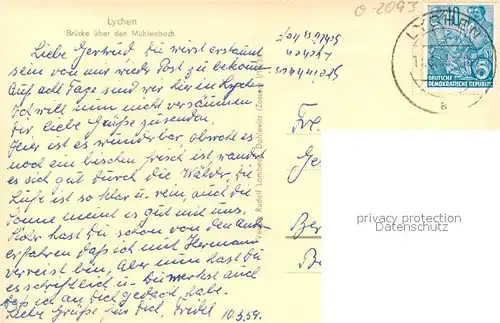 Lychen
Brücke über den Mühlenbach
Liebe Gertrud, du wirst erstaunt
sein von mir wieder Post zu bekom-
Auf acht Tage sind wir hier in Lychen
Ich will nun nicht versäumen
Dir, liebe Grüße zu senden.
Hier ist es wunderbar, obwohl es
noch ein bischen frisch ist, wandert
es sich gut durch die Wälder, die
Luft ist so klar u. rein, auch die
Sonne meint es gut mit uns.
hast du schon von den
erfahren daß ich mit Hermann
verreist bin, Aber nun hast du
es schriftlich u. bemerkst auch
daß ich an dich gedacht habe.
Liebe Grüße für Dich,
10.5.59.
Rudolf Lambeck, Dahlewitz (Zossen)
0-2093
LYCHEN
10
DEUTSCHE
DEMOKRATISCHE REPUBLIK
5
B
Fr.
Ge
Ber
PROTECTED PERSONAL DATA
(NOT ON ORIGINAL)